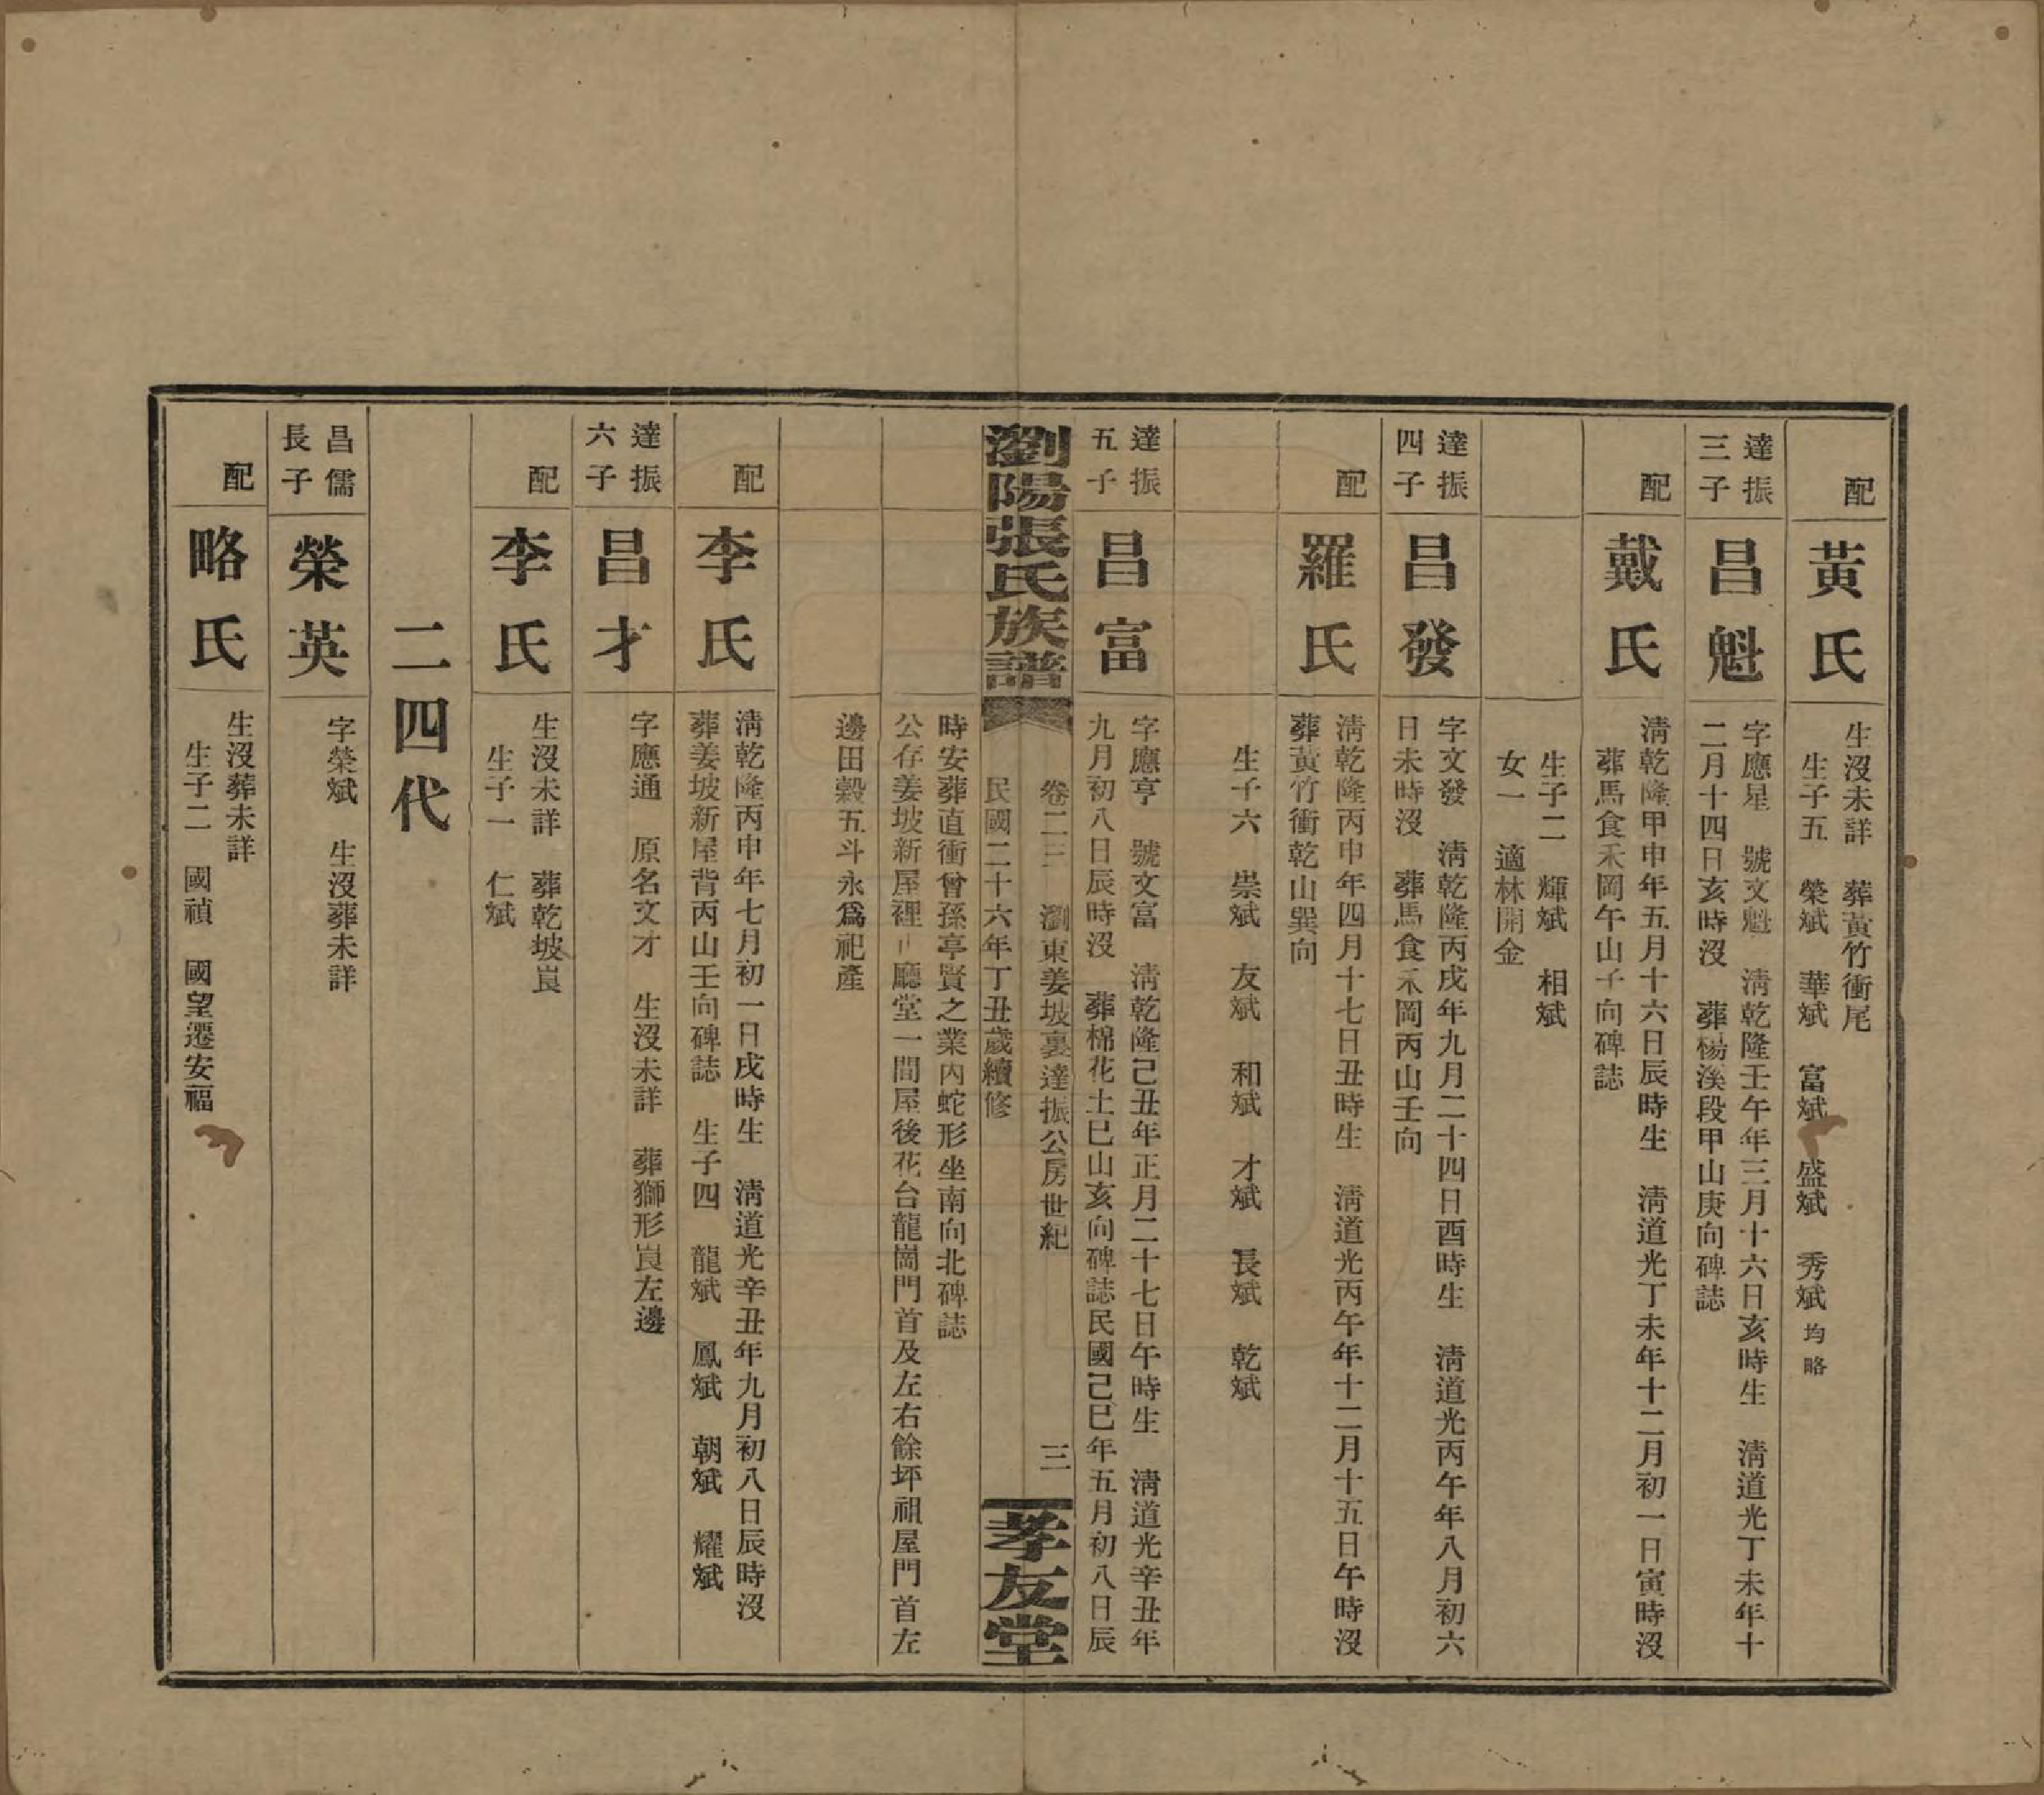 配
黃氏
生沒未詳　葬黃竹衝尾
生子五　榮斌　華斌　富斌　盛斌　秀斌　均略
達振
三子
昌魁
字應星　號文魁　清乾隆壬午年三月十六日亥時生　清道光丁未年十
二月十四日亥時沒　葬楊溪段甲山庚向碑誌
配
戴氏
清乾隆甲申年五月十六日辰時生　清道光丁未年十二月初一日寅時沒
葬馬食禾岡午山子向碑誌
生子二　輝斌　相斌
女一　適林開金
達振
四子
昌發
字文發　清乾隆丙戌年九月二十四日酉時生　清道光丙午年八月初六
日未時沒　葬馬食禾岡丙山壬向
配
羅氏
清乾隆丙申年四月十七日丑時生　清道光丙午年十二月十五日午時沒
葬黃竹衝乾山巽向
生子六　崇斌　友斌　和斌　才斌　長斌　乾斌
達振
五子
昌富
字應亨　號文富　清乾隆己丑年正月二十七日午時生　清道光辛丑年
九月初八日辰時沒　葬棉花土巳山亥向碑誌民國己巳年五月初八日辰
瀏陽張氏族譜
卷二三　瀏東姜坡裏達振公房世紀　三
民國二十六年丁丑歲續修
孝友堂
時安葬直衝曾孫亭賢之業內蛇形坐南向北碑誌
公存姜坡新屋裡正廳堂一間屋後花台龍崗門首及左右餘坪祖屋門首左
邊田穀五斗永為祀產
配
李氏
清乾隆丙申年七月初一日戌時生　清道光辛丑年九月初八日辰時沒
葬姜坡新屋背丙山壬向碑誌　生子四　龍斌　鳳斌　朝斌　耀斌
達振
六子
昌才
字應通　原名文才　生沒未詳　葬獅形崀左邊
配
李氏
生沒未詳　葬乾坡崀
生子一　仁斌
二四代
昌儒
長子
榮英
字榮斌　生沒葬未詳
配
略氏
生沒葬未詳
生子二　國禎　國望遷安福